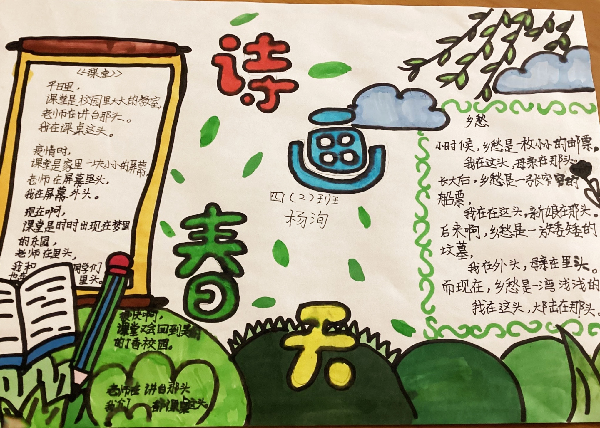 诗
遇
春
天
四(2)班
杨洵
《课堂》
平日里,
课堂是校园里大大的教室,
老师在讲台那头。
我在课桌这头。
疫情时,
课堂是家里一块小小的屏幕,
老师在屏幕里头,
我在屏幕外头。
现在啊,
课堂是时时出现在梦里
的乐园,
老师在里头,
我和 同学们
里头。
课堂会回到美丽
的 校园。
老师在讲台那头
我们 课桌这头。
乡愁
小时候,乡愁是一枚小小的邮票,
我在这头,母亲在那头。
长大后,乡愁是一张窄窄的
船票,
我在这头,新娘在那头。
后来啊,乡愁是一方矮矮的
坟墓,
我在外头,母亲在里头。
而现在,乡愁是一湾浅浅的
我在这头,大陆在那头。